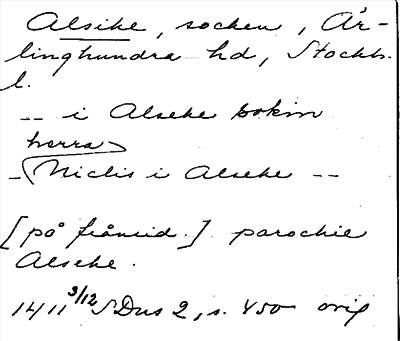 Alsike, socken, Är-
linghundra hd, Stockh.
l.
-- i Alseke sokin
herra
- Niclis i Alseke --
[på frånsid.] parochie
Alseke.
1411 3/12 SDns 2, s. 450 orig